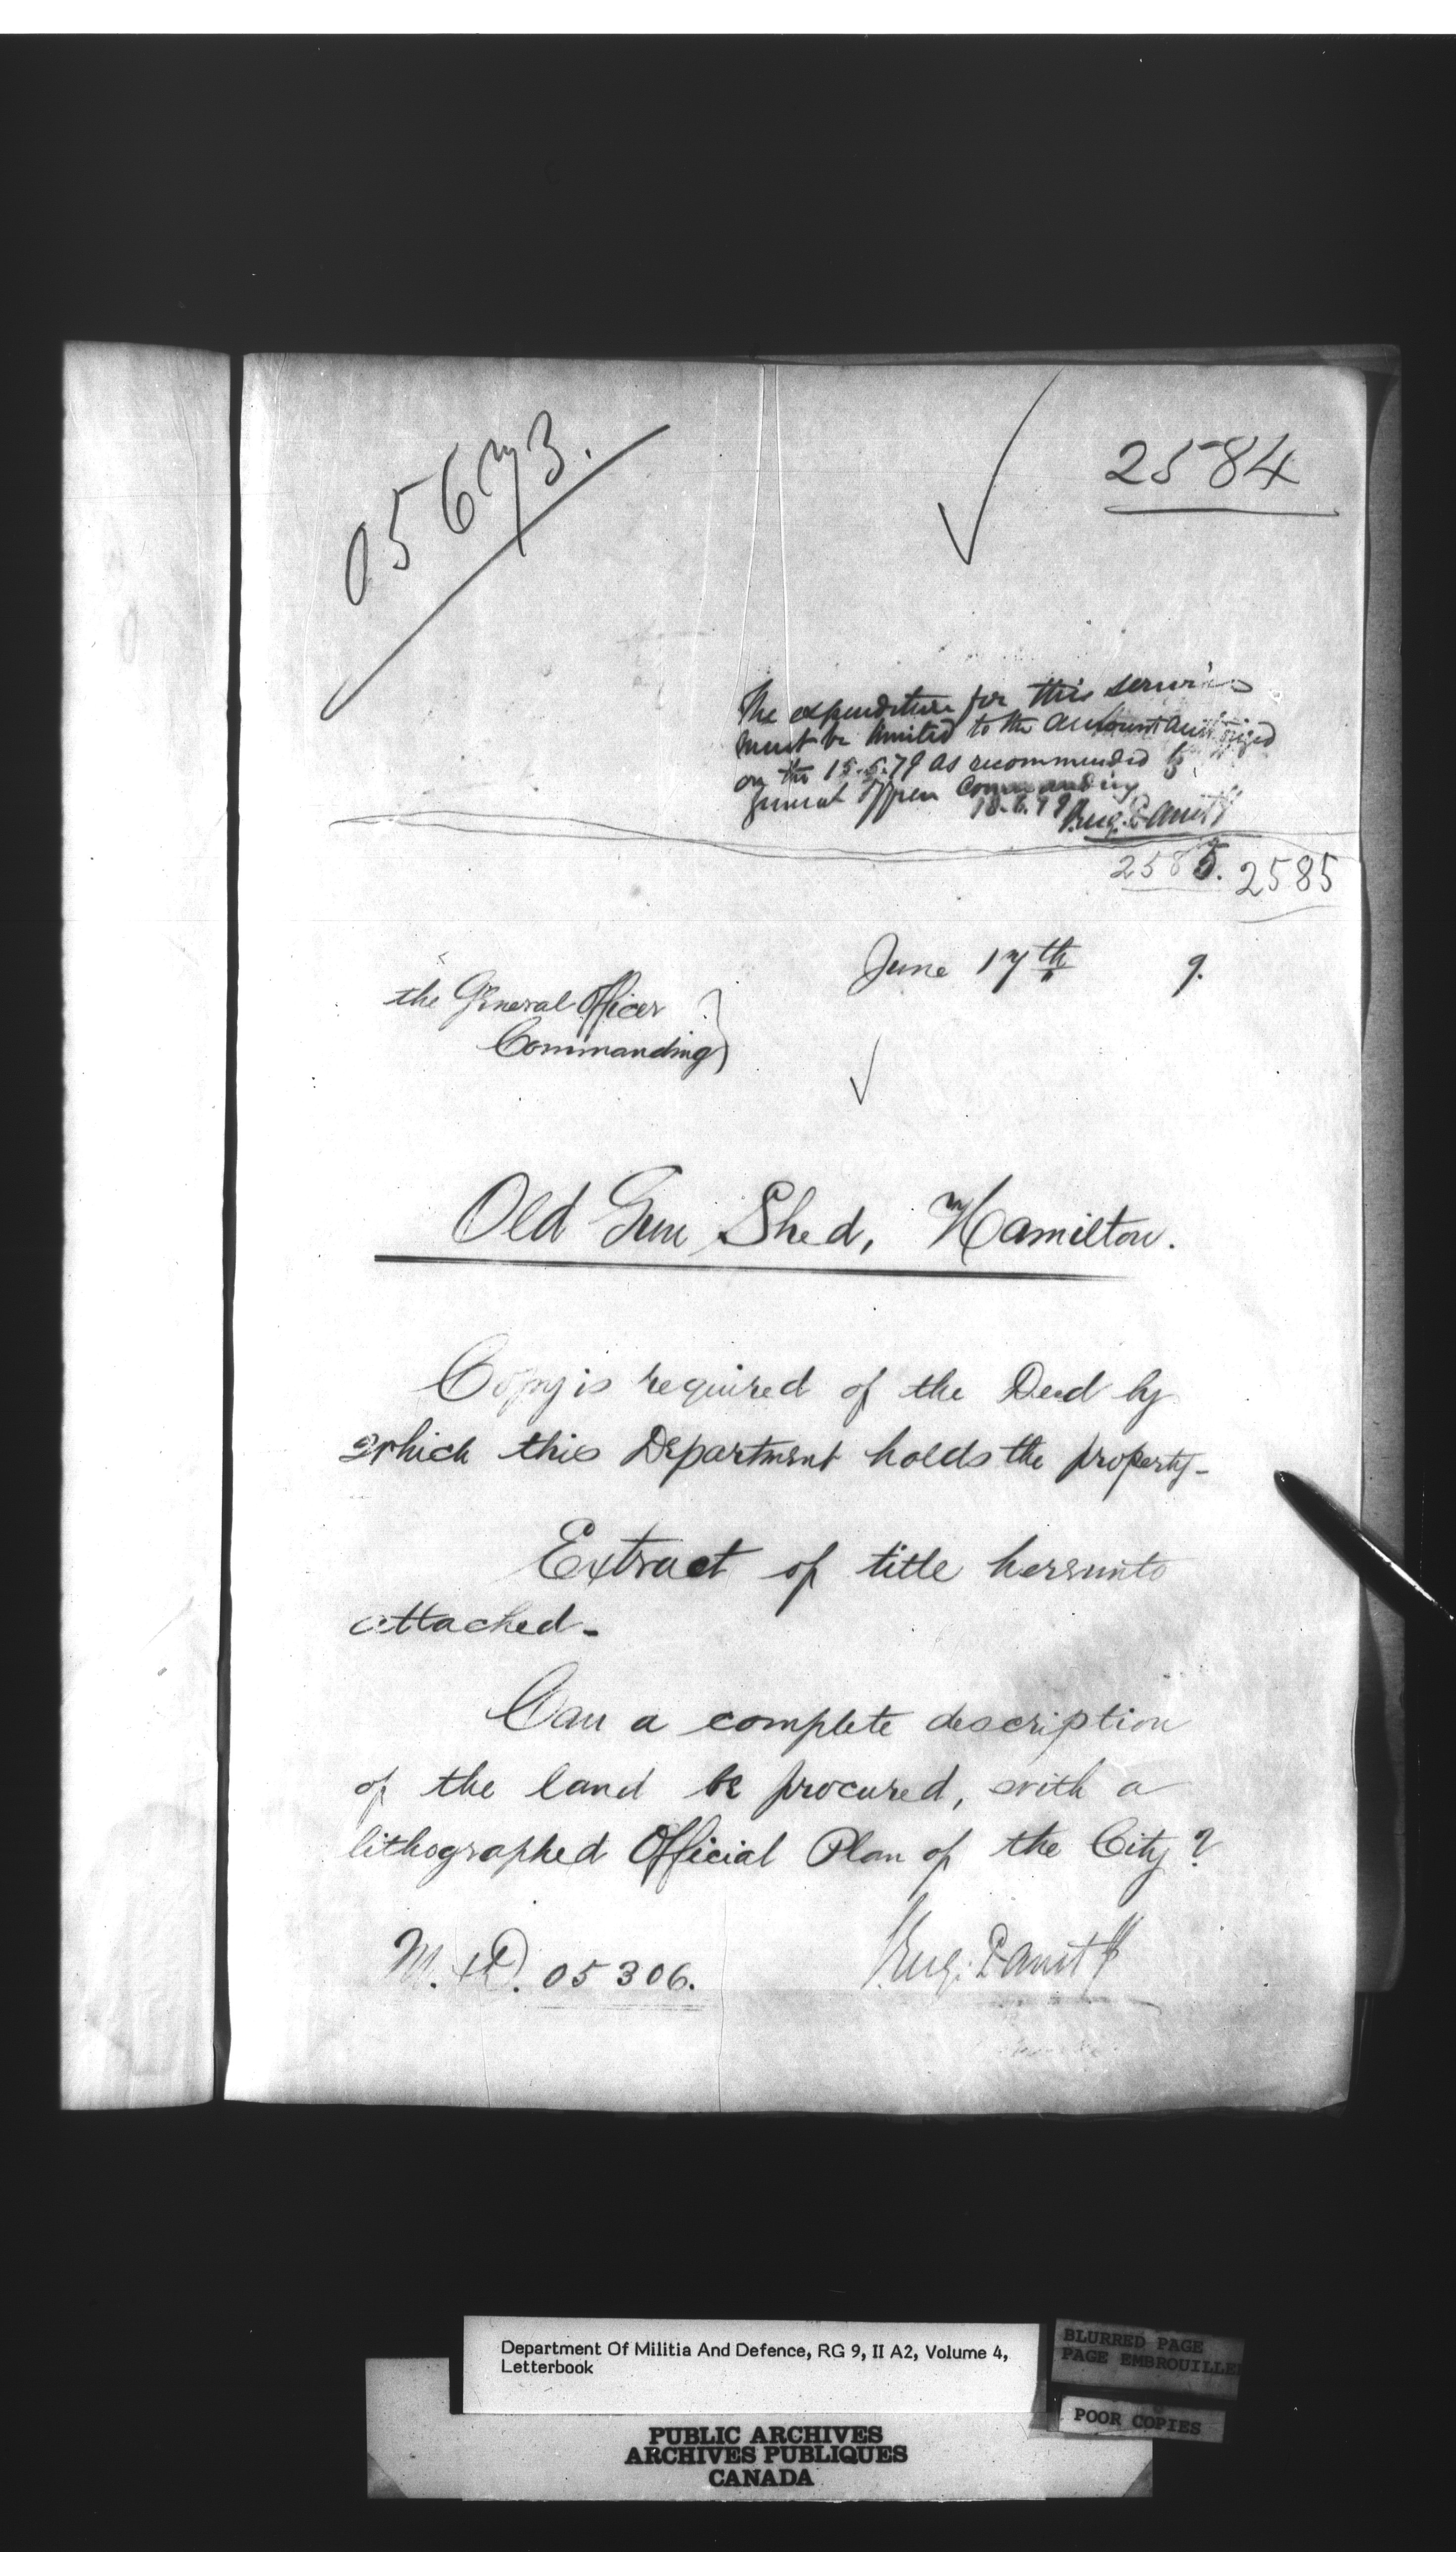 05673.
2584
The expenditure for this service
must be limited to the amount authorized
on the 15.5.79 as recommended by
General Officer Commanding
18.6.79 Eug. Panet
2585. 2585
June 17th 9.
the General Officer
Commanding
Old Gun Shed, Hamilton.
Copy is required of the Deed by
which this Department holds the property-
Extract of title hereunto
attached-
Can a complete description
of the land be procured, with a
lithographed Official Plan of the City?
M. & D. 05306.
Eug. Panet
Department Of Militia And Defence, RG 9, II A2, Volume 4,
Letterbook
BLURRED PAGE
PAGE EMBROUILLE
POOR COPIES
PUBLIC ARCHIVES
ARCHIVES PUBLIQUES
CANADA